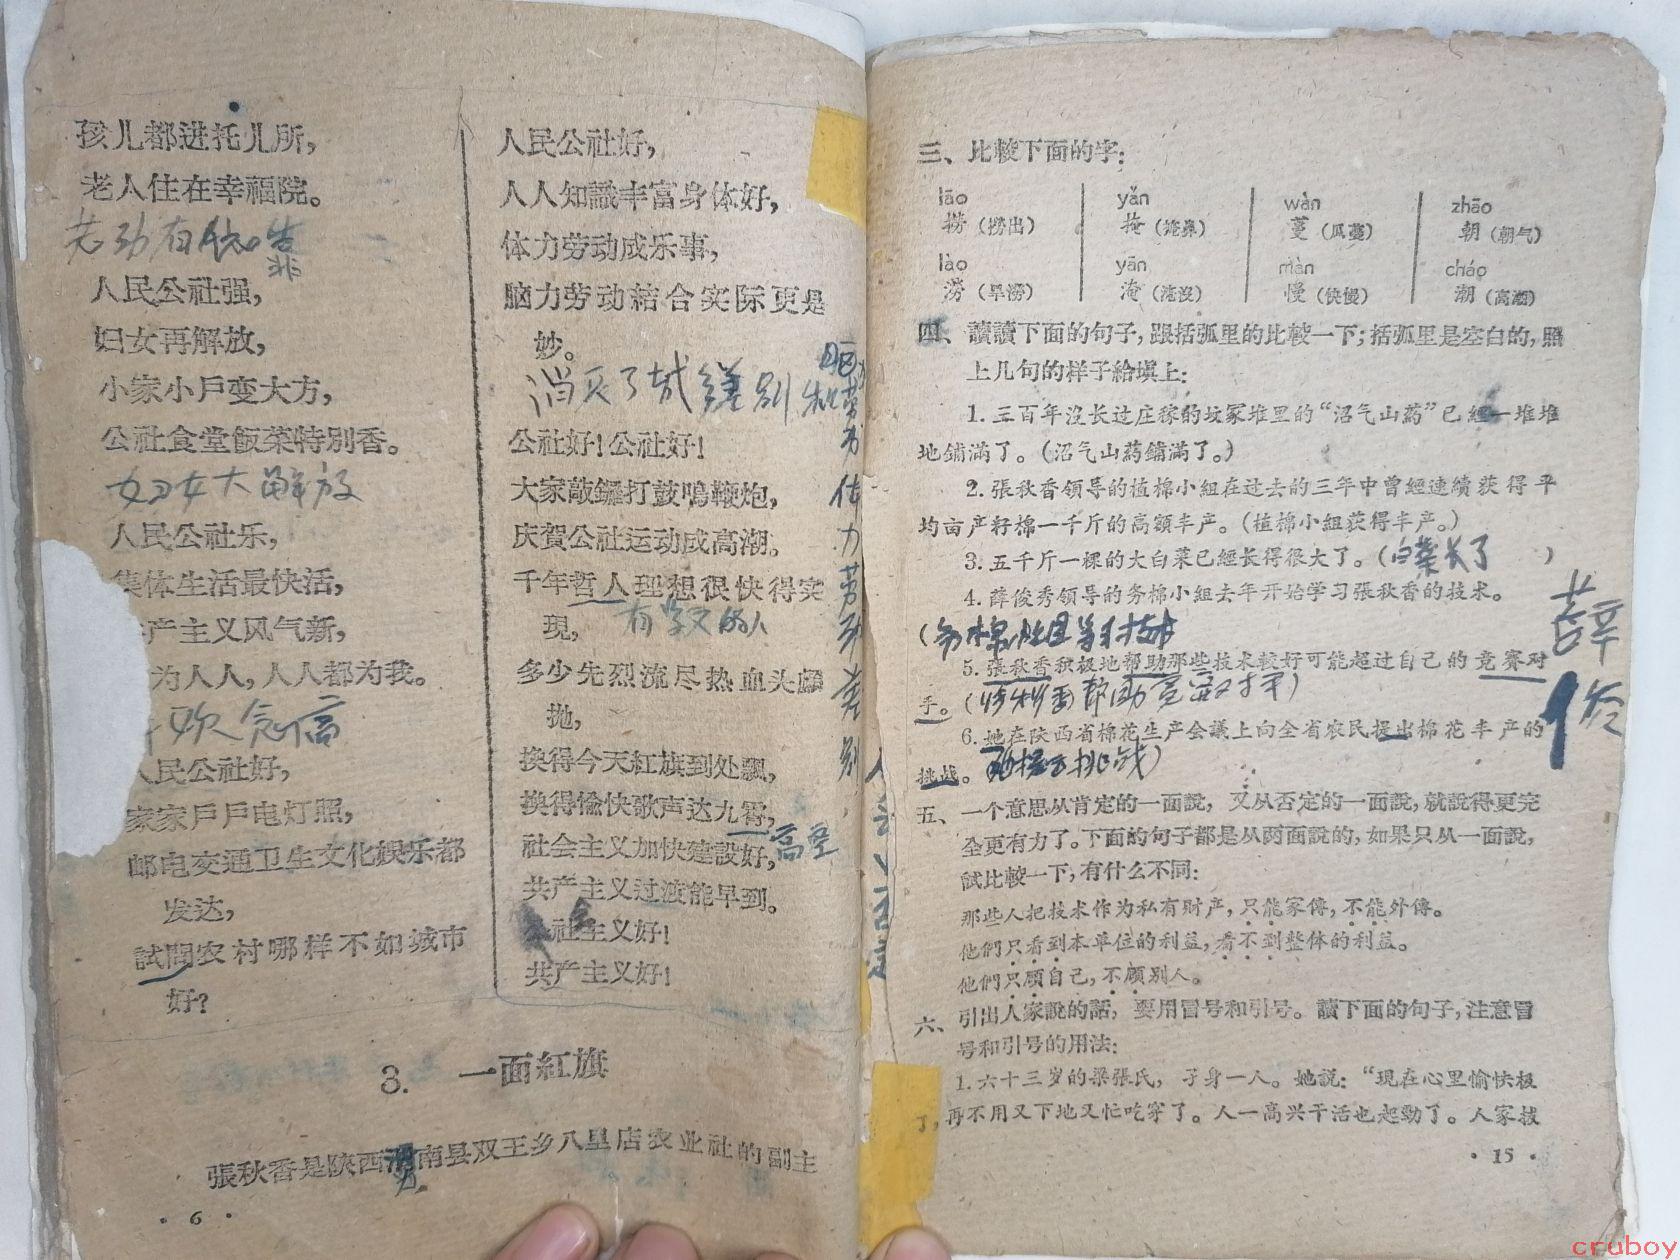 孩儿都进托儿所，
老人住在幸福院。
老幼有依靠
人民公社强，
妇女再解放，
小家小戶变大方，
公社食堂飯菜特別香。
妇女大解放
人民公社乐，
集体生活最快活，
产主义风气新，
为人人，人人都为我。
人民公社好，
家家戶戶电灯照，
邮电交通卫生文化娱乐都
发达，
試問农村哪样不如城市
好？
人民公社好，
人人知識丰富身体好，
体力劳动成乐事，
脑力劳动結合实际更是
妙。
消灭了城乡差别
公社好！公社好！
大家敲鑼打鼓鳴鞭炮，
庆賀公社运动成高潮。
千年哲人理想很快得实
現，
有学文的人
多少先烈流尽热血头顱
拋，
換得今天紅旗到处飄，
換得愉快歌声达九霄，
高空
社会主义加快建設好，
共产主义过渡能早到。
公社主义好！
共产主义好！
体力劳动差别
3. 一面紅旗
張秋香是陝西渭南县双王乡八里店农业社的副主
·6·
三、比較下面的字：
lāo yǎn wàn zhāo
捞（捞出） 掩（掩鼻） 蔓（瓜蔓） 朝（朝气）
lào yān màn cháo
涝（旱涝） 淹（淹沒） 慢（快慢） 潮（高潮）
四、讀讀下面的句子，跟括弧里的比較一下；括弧里是空白的，照
上几句的样子給填上：
1. 三百年沒长过庄稼的坟冢堆里的“沼气山药”已經一堆堆
地鋪滿了。（沼气山药鋪滿了。）
2. 張秋香領导的植棉小組在过去的三年中曾經連續获得平
均亩产籽棉一千斤的高額丰产。（植棉小組获得丰产。）
3. 五千斤一棵的大白菜已經长得很大了。（白菜长了）
4. 薛俊秀領导的务棉小組去年开始学习張秋香的技术。
（务棉小組学习技术
5. 張秋香积极地帮助那些技术較好可能超过自己的竞赛对
手。（張秋香帮助竞賽对手）
6. 她在陝西省棉花生产会議上向全省农民提出棉花丰产的
挑战。（她提出挑战）
薛
五、一个意思从肯定的一面說，又从否定的一面說，就說得更完
全更有力了。下面的句子都是从两面說的，如果只从一面說，
試比較一下，有什么不同：
那些人把技术作为私有財产，只能家傳，不能外傳。
他們只看到本单位的利益，看不到整体的利益。
他們只顧自己，不顧別人。
六、引出人家說的話，要用冒号和引号。讀下面的句子，注意冒
号和引号的用法：
1. 六十三岁的梁張氏，孑身一人。她說：“現在心里愉快极
了，再不用又下地又忙吃穿了。人一高兴干活也起勁了。人家拔
·15·
cruboy